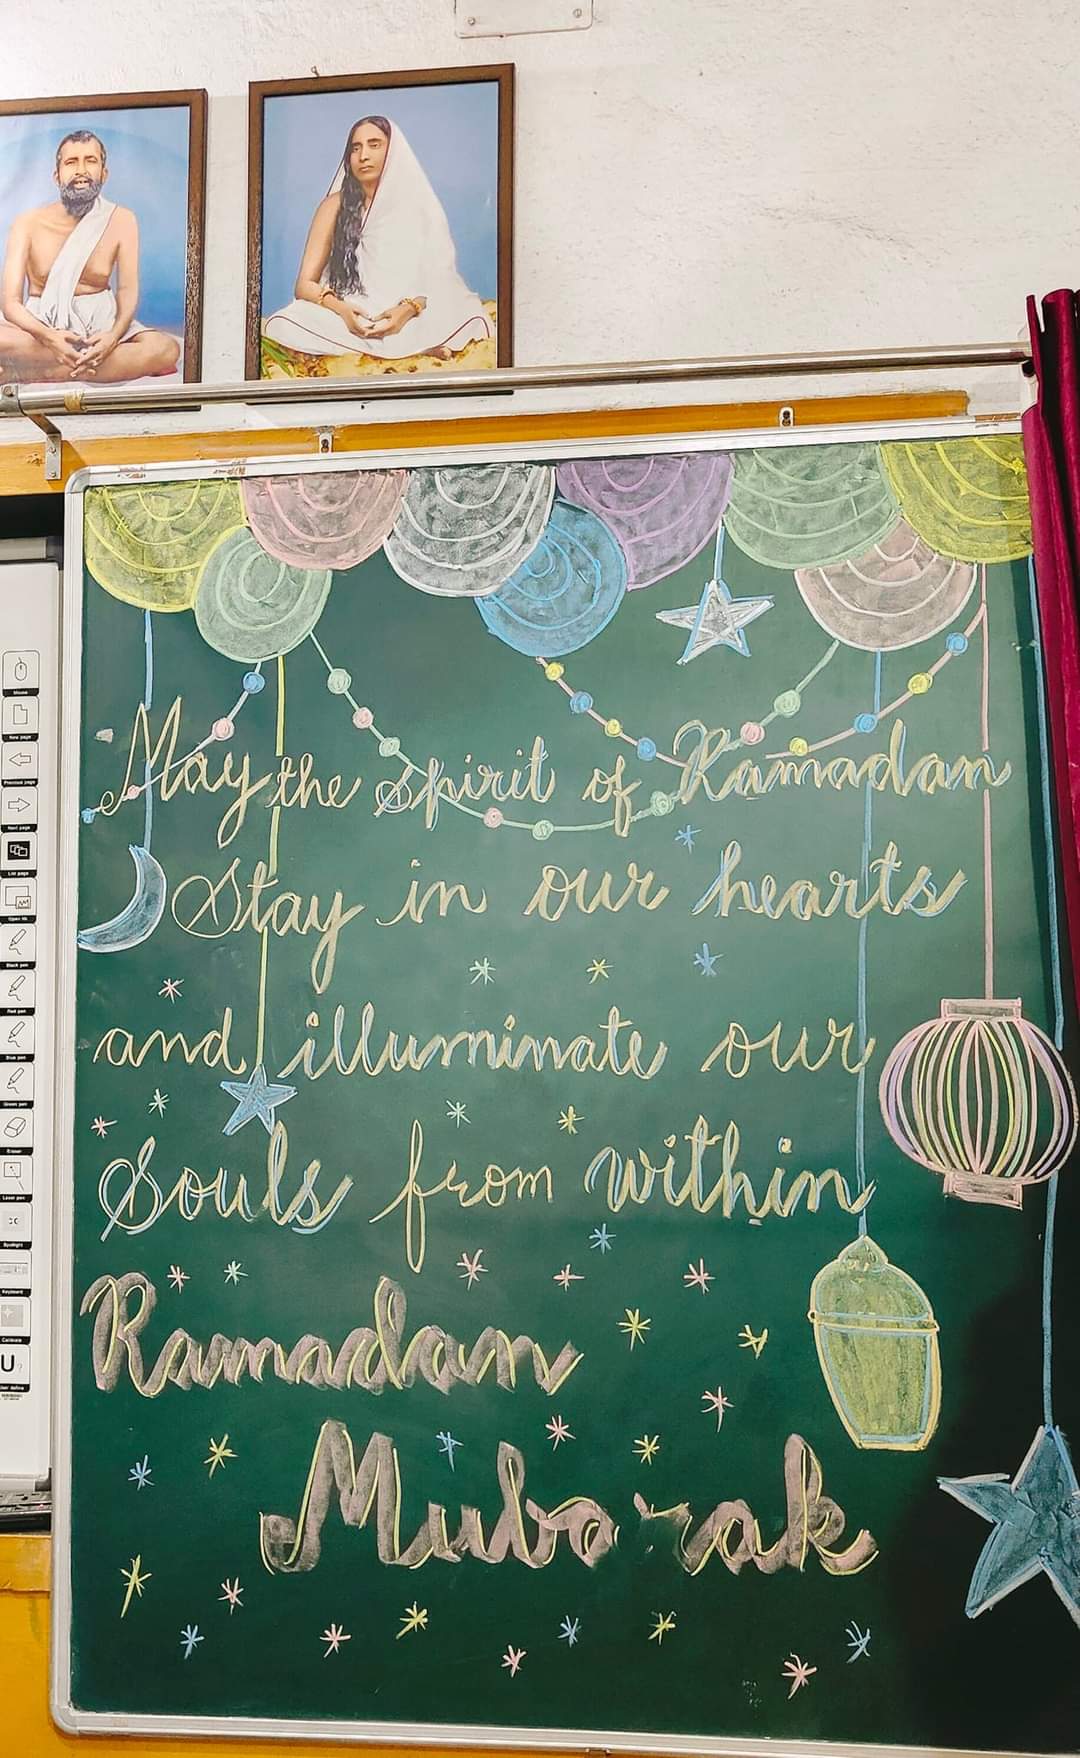 May the spirit of Ramadan
Stay in our hearts
and illuminate our
Souls from within
Ramadan
Mubarak
Mouse
New page
Previous page
Next page
Black pen
Red pen
Blue pen
Green pen
Eraser
Laser pen
Spotlight
Keyboard
Calibrate
U
User define